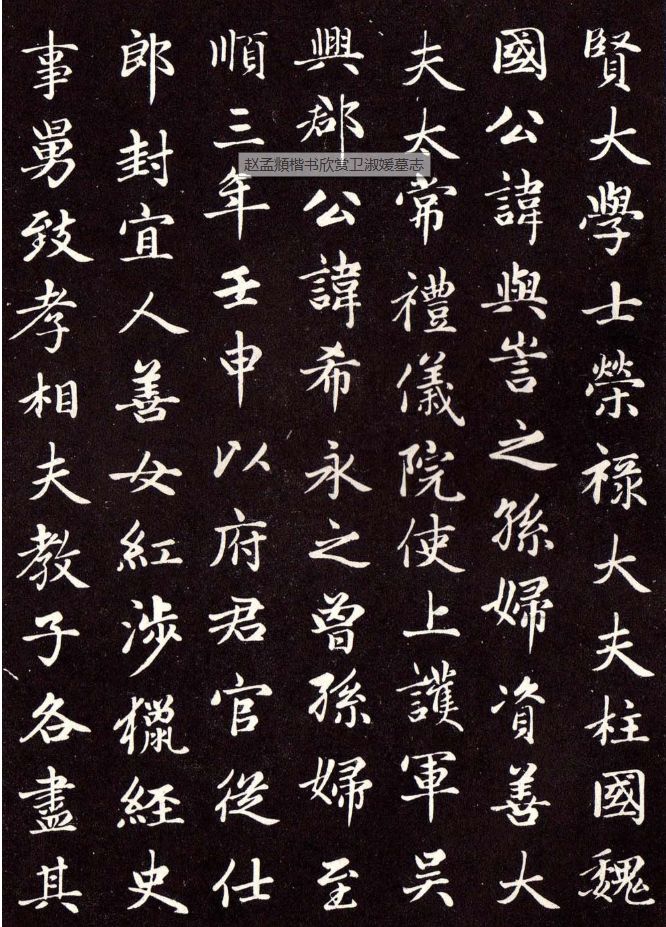 賢大學士榮祿大夫柱國魏
國公諱與訔之孫婦資善大
夫太常禮儀院使上護軍吴
興郡公諱希永之曾孫婦至
順三年壬申以府君官從仕
郎封宜人善女紅涉獵經史
事舅致孝相夫教子各盡其
赵孟頫楷书欣赏卫淑媛墓志